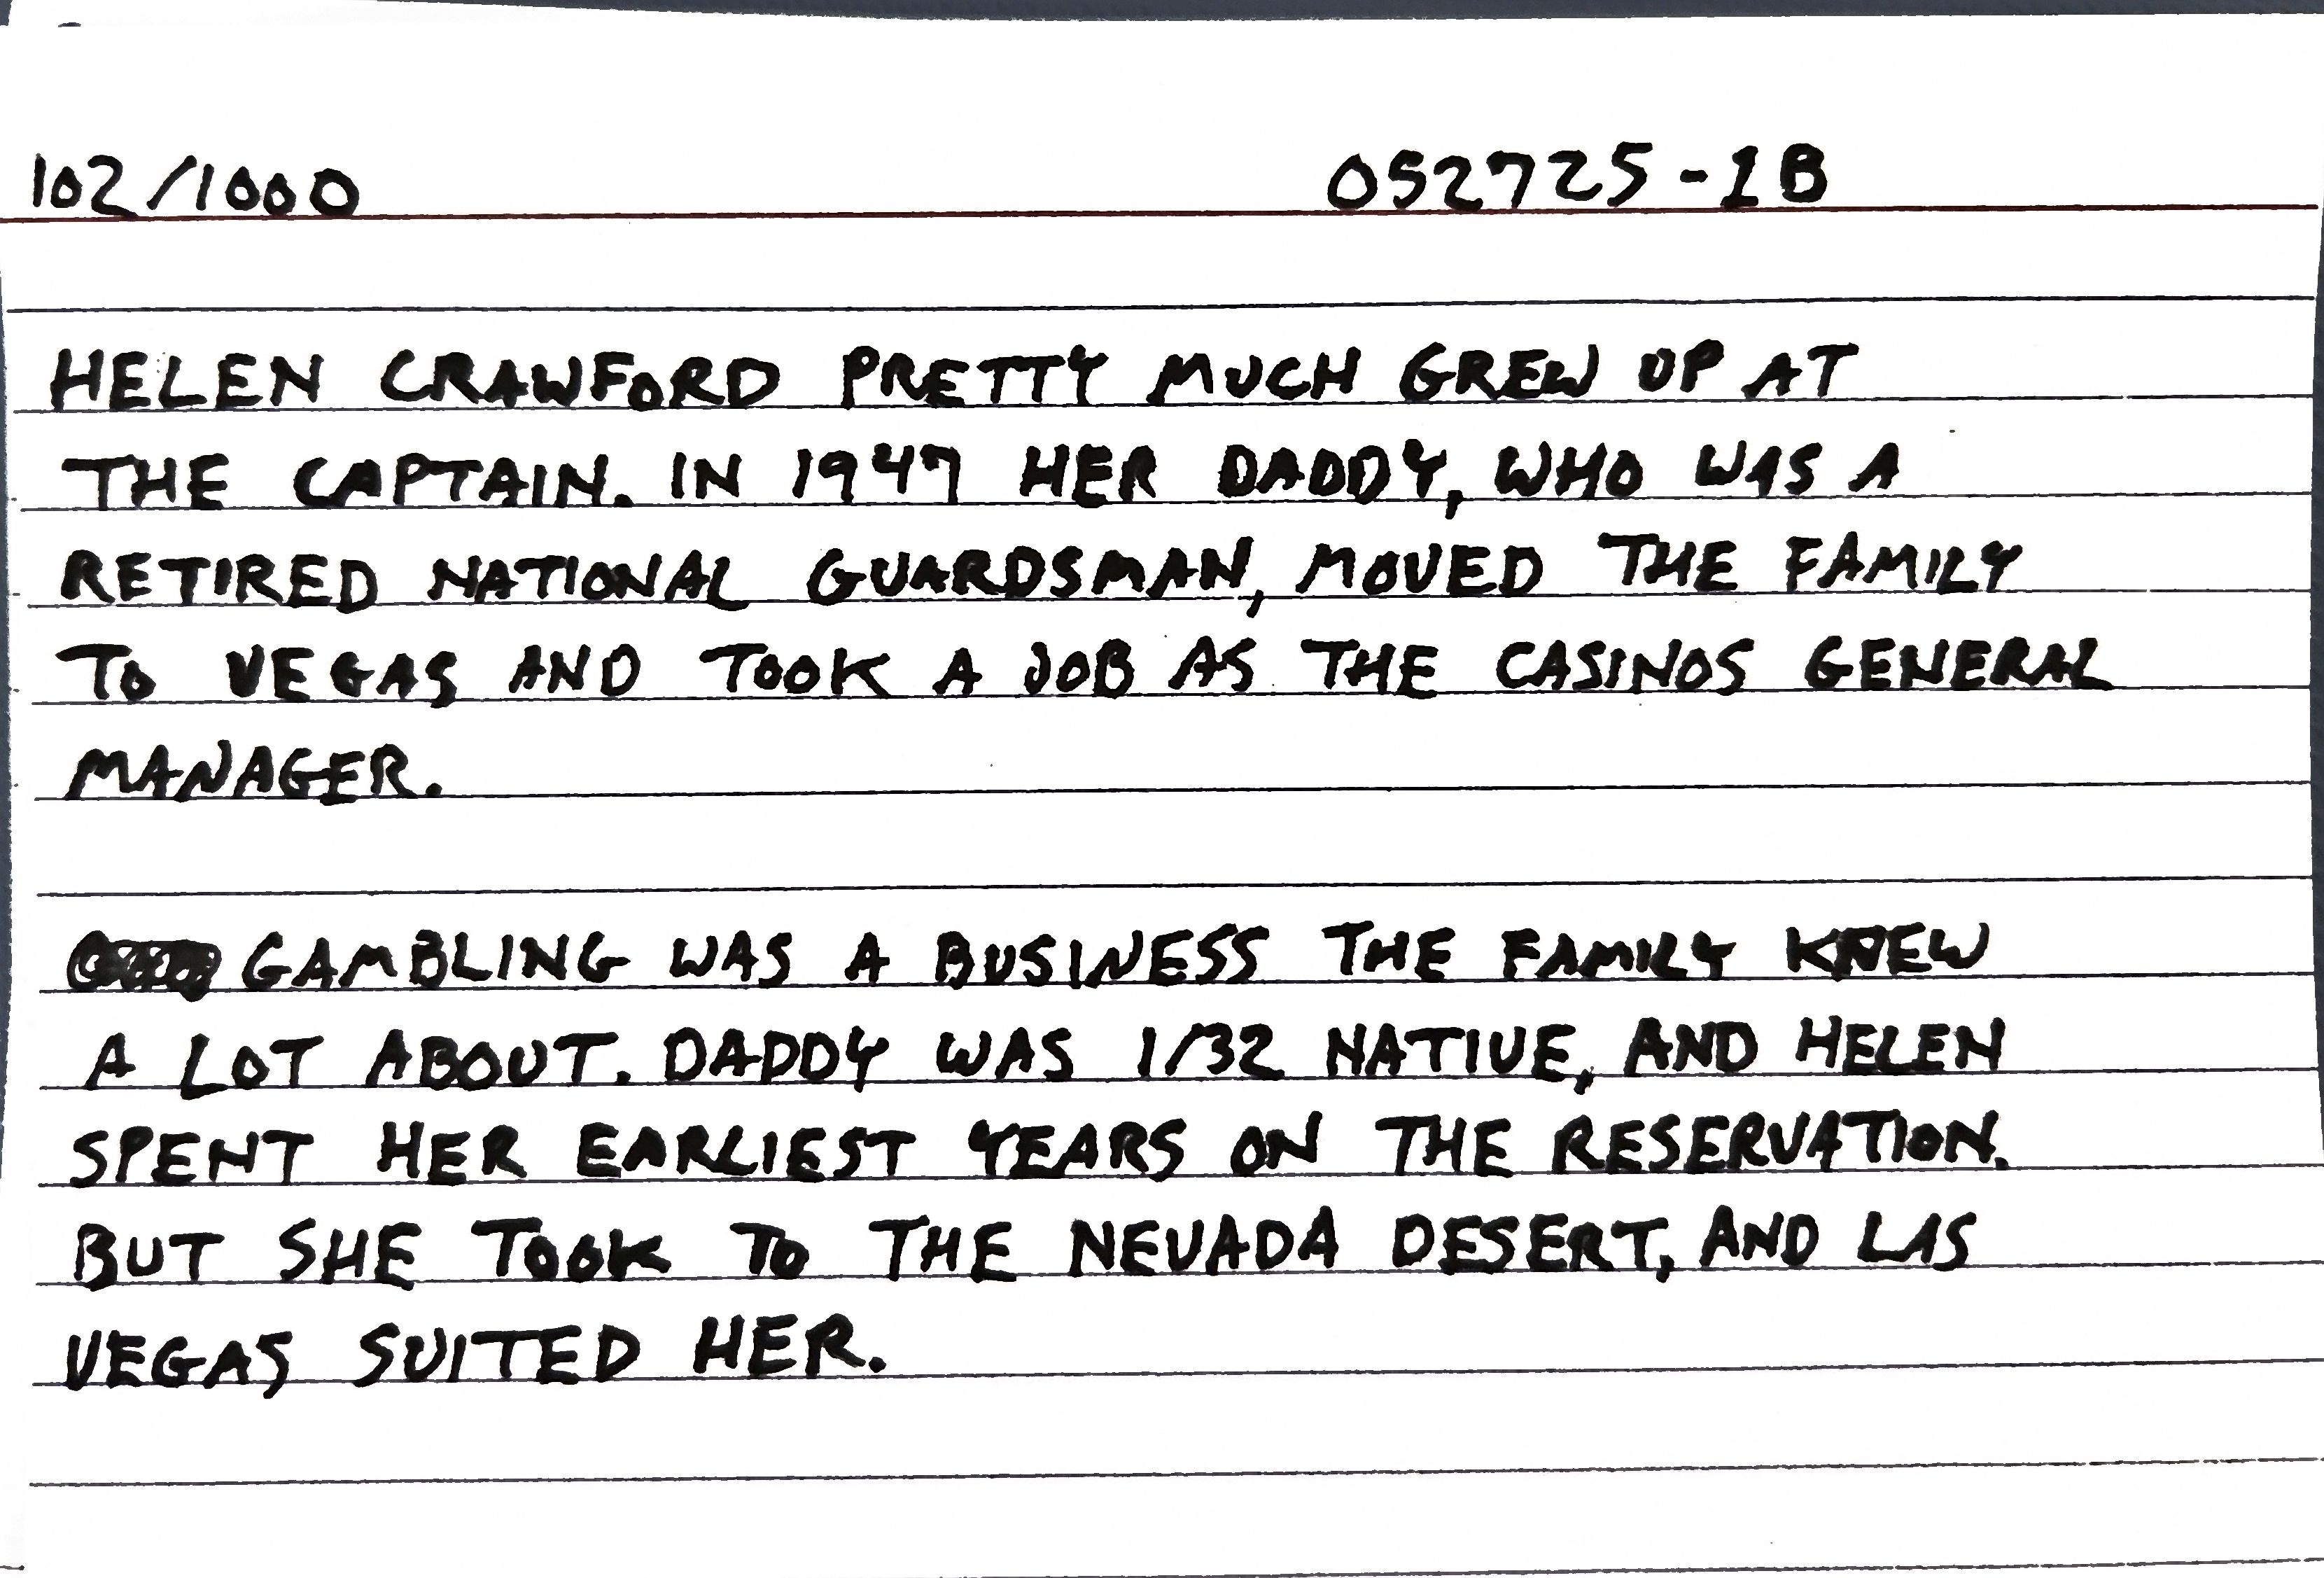 102/1000 052725-1B
HELEN CRAWFORD PRETTY MUCH GREW UP AT
THE CAPTAIN. IN 1947 HER DADDY, WHO WAS A
RETIRED NATIONAL GUARDSMAN, MOVED THE FAMILY
TO VEGAS AND TOOK A JOB AS THE CASINOS GENERAL
MANAGER.
GAMBLING WAS A BUSINESS THE FAMILY KNEW
A LOT ABOUT. DADDY WAS 1/32 NATIVE, AND HELEN
SPENT HER EARLIEST YEARS ON THE RESERVATION.
BUT SHE TOOK TO THE NEVADA DESERT, AND LAS
VEGAS SUITED HER.